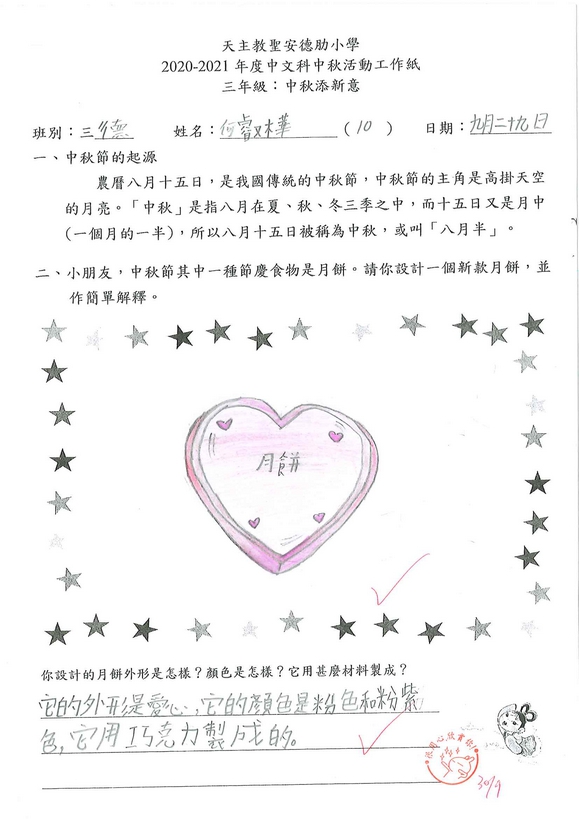 天主教聖安德肋小學
2020-2021 年度中文科中秋活動工作紙
三年級：中秋添新意
班別：三德 姓名：何睿樺 ( 10 ) 日期：九月二十九日
一、中秋節的起源
農曆八月十五日，是我國傳統的中秋節，中秋節的主角是高掛天空
的月亮。「中秋」是指八月在夏、秋、冬三季之中，而十五日又是月中
(一個月的一半)，所以八月十五日被稱為中秋，或叫「八月半」。
二、小朋友，中秋節其中一種節慶食物是月餅。請你設計一個新款月餅，並
作簡單解釋。
月餅
你設計的月餅外形是怎樣？顏色是怎樣？它用甚麼材料製成？
它的外形是愛心，它的顏色是粉色和粉紫
色，它用巧克力製成的。
我用心欣賞你！
30/9